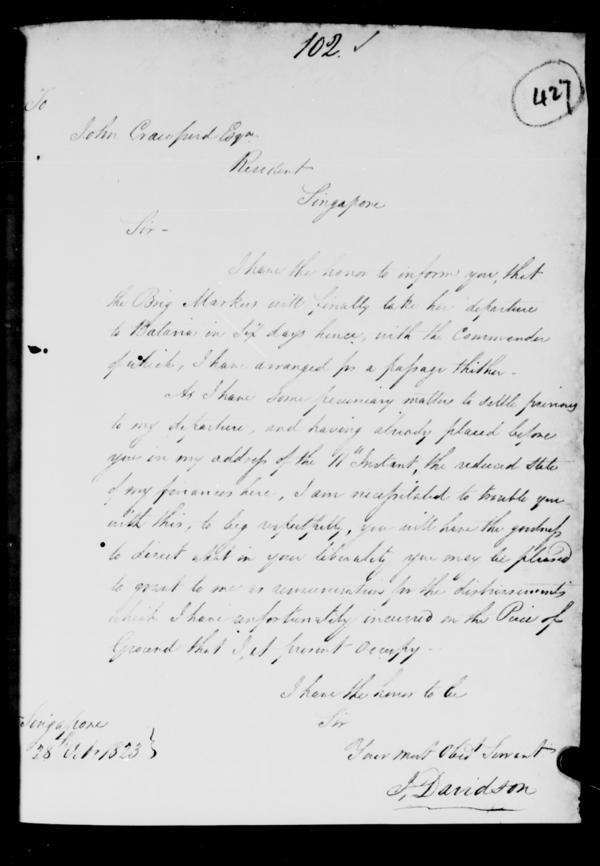 102.
427
To
John Crawfurd Esqr.
Resident
Singapore
Sir -
I have the honor to inform you, that
the Brig Markus will finally take her departure
to Batavia in Six days hence, with the Commander
of which, I have arranged for a passage thither -
As I have some pecuniary matters to settle previous
to my departure, and having already placed before
you in my address of the 11th Instant, the reduced state
of my finances here, I am necessitated to trouble you
with this, to beg respectfully, you will have the goodness
to direct what in your liberality you may be pleased
to grant to me as remuneration for the disbursements
which I have unfortunately incurred on the Piece of
Ground that I, at present occupy -
I have the honor to be
Sir
Your most Obedt Servant
J. Davidson
Singapore
28th Octr 1823